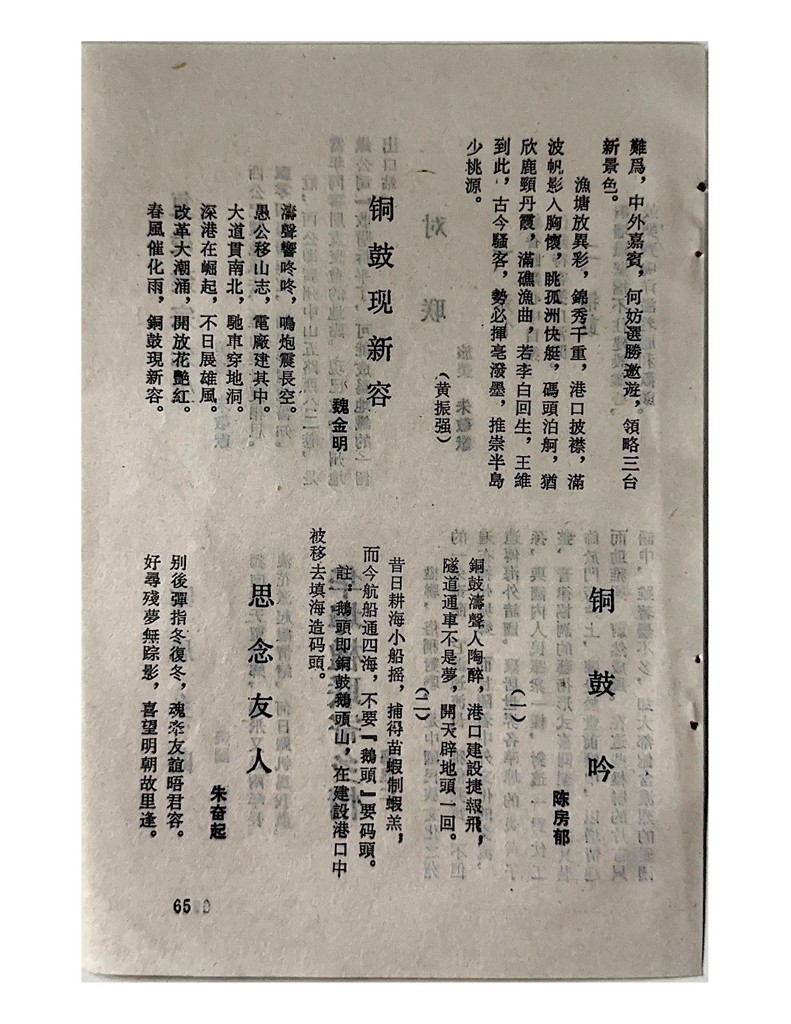 難爲，中外嘉賓，何妨選勝邀遊，領略三台
新景色。
漁塘放異彩，錦秀千重，港口披襟，滿
波帆影入胸懷，眺孤洲快艇，碼頭泊舸，猶
欣鹿頸丹霞，滿礁漁曲，若李白回生，王維
到此，古今騷客，勢必揮亳潑墨，推崇半島
少桃源。
（黄振强）
铜鼓现新容
魏金明
濤聲響咚咚，鳴炮震長空。
愚公移山志，電廠建其中。
大道貫南北，馳車穿地洞。
深港在崛起，不日展雄風。
改革大潮涌，開放花艷紅。
春風催化雨，銅鼓現新容。
铜鼓吟
陈房郁
（一）
銅鼓濤聲人陶醉，港口建設捷報飛，
隧道通車不是夢，開天辟地頭一回。
（二）
昔日耕海小船摇，捕得苗蝦制蝦羔，
而今航船通四海，不要『鵝頭』要码頭。
註：鵝頭即銅鼓鵝頭山，在建設港口中
被移去填海造码頭。
思念友人
朱奋起
别後彈指冬復冬，魂牽友誼晤君容。
好尋殘夢無踪影，喜望明朝故里逢。
65